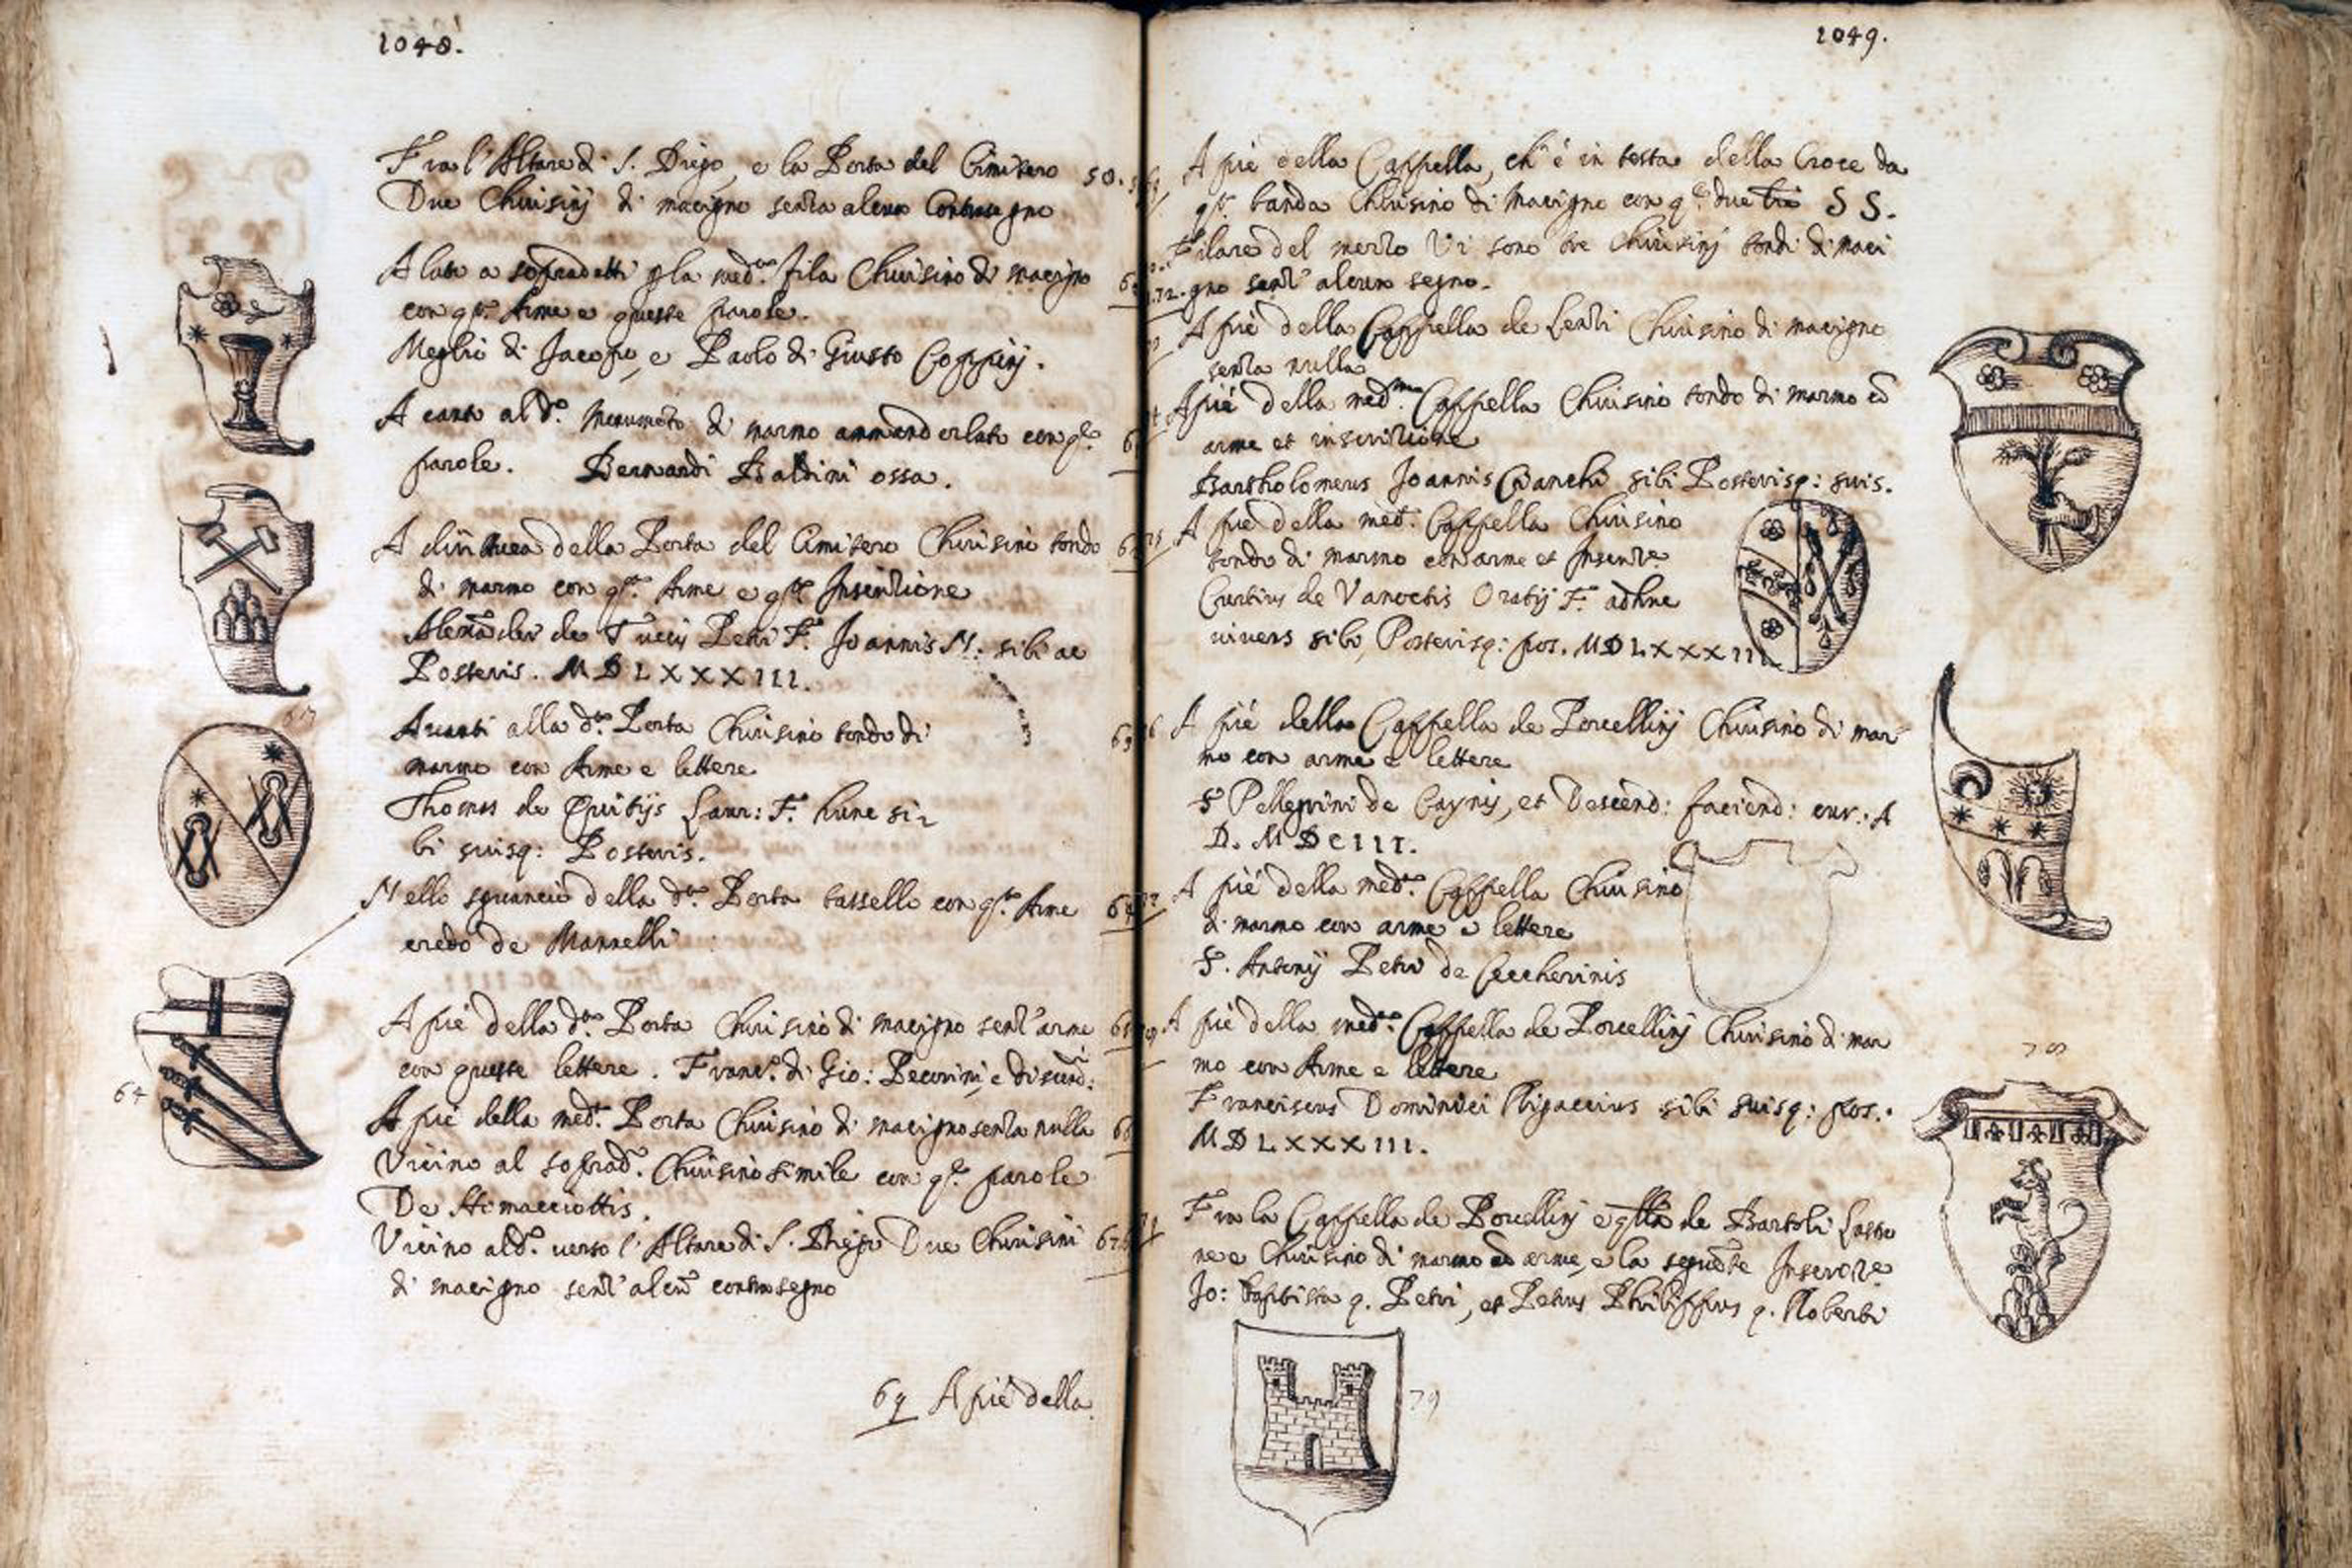 1048.
Fra l'Altare di S. Diego, e la Porta del Cimitero 50.
Due Chiusinj di macigno senza alcun Contrasegno
A lato a sopradetti p la med.ma fila Chiusino di macigno
con q.ta Arme e queste parole.
Meglio di Jacopo, e Paolo di Giusto Coppinj.
A canto al d.o Monumēto di marmo ammandorlato con q.e
parole. Bernardi Baldini ossa.
A dirittura della Porta del Cimitero Chiusino tondo
di marmo con q.ta Arme e q.ta Inscrizione
Alexāder de Tuccij Petri F. Joannis N. sibi ac
Posteris. MDLXXXIII.
Avanti alla d.ta Porta Chiusino tondo di
marmo con Arme e lettere
Thomas de Laur: F. hunc si-
bi suisq: Posteris.
Nello sguancio della d.ta Porta tassello con q.ta Arme
credo de Mannelli
A piè della d.ta Porta Chiusino di macigno senz'arme
con queste lettere. Franc.o di Gio: Pecorini, e discēd.i:
A piè della med.a Porta Chiusino di macigno senza nulla
Vicino al soprad.o Chiusino simile con q.e parole
De Himacciottis.
Vicino al d.o verso l'Altare di S. Diego Due Chiusini
di macigno senz'alcū contrasegno
64
69 A piè della
1049.
A piè della Cappella, ch'è in testa della Croce da
q.ta banda Chiusino di Macigno con q.e due S S.
Filare del mezzo Vi sono tre Chiusinj tondi di maci
72. gno senz'alcuno segno.
A piè della Cappella de Lenzi Chiusino di macigno
senza nulla
A piè della med.ma Cappella Chiusino tondo di marmo cō
arme et inscrizione
Bartholomeus Joannis Cianchi sibi Posterisq: suis.
A piè della med.a Cappella Chiusino
tondo di marmo con arme et Inscriz.e
Curtius de Vanoctis Oratij F. adhuc
vivens sibi, Posterisq: pos. MDLXXXIII.
A piè della Cappella de Porcellinj Chiusino di mar
mo con arme e lettere
S Pellegrini de Caynis, et Descend: faciend: cur: A
D. MDCIII.
A piè della med.a Cappella Chiusino
di marmo con arme e lettere
S. Antonij Petri de Ceccherinis
A piè della med.a Cappella de Porcellinj Chiusino di mar
mo con Arme e lettere
Franciscus Dominici Rigaccius sibi suisq: pos.
MDLXXXIII.
78
Fra la Cappella de Porcellinj e q̄lla de Bartoli Lastro
ne e Chiusino di marmo cō arme, e la seguēte Inscriz.e
Jo: Baptista q. Petri, et Petrus Philippus q. Roberti
79